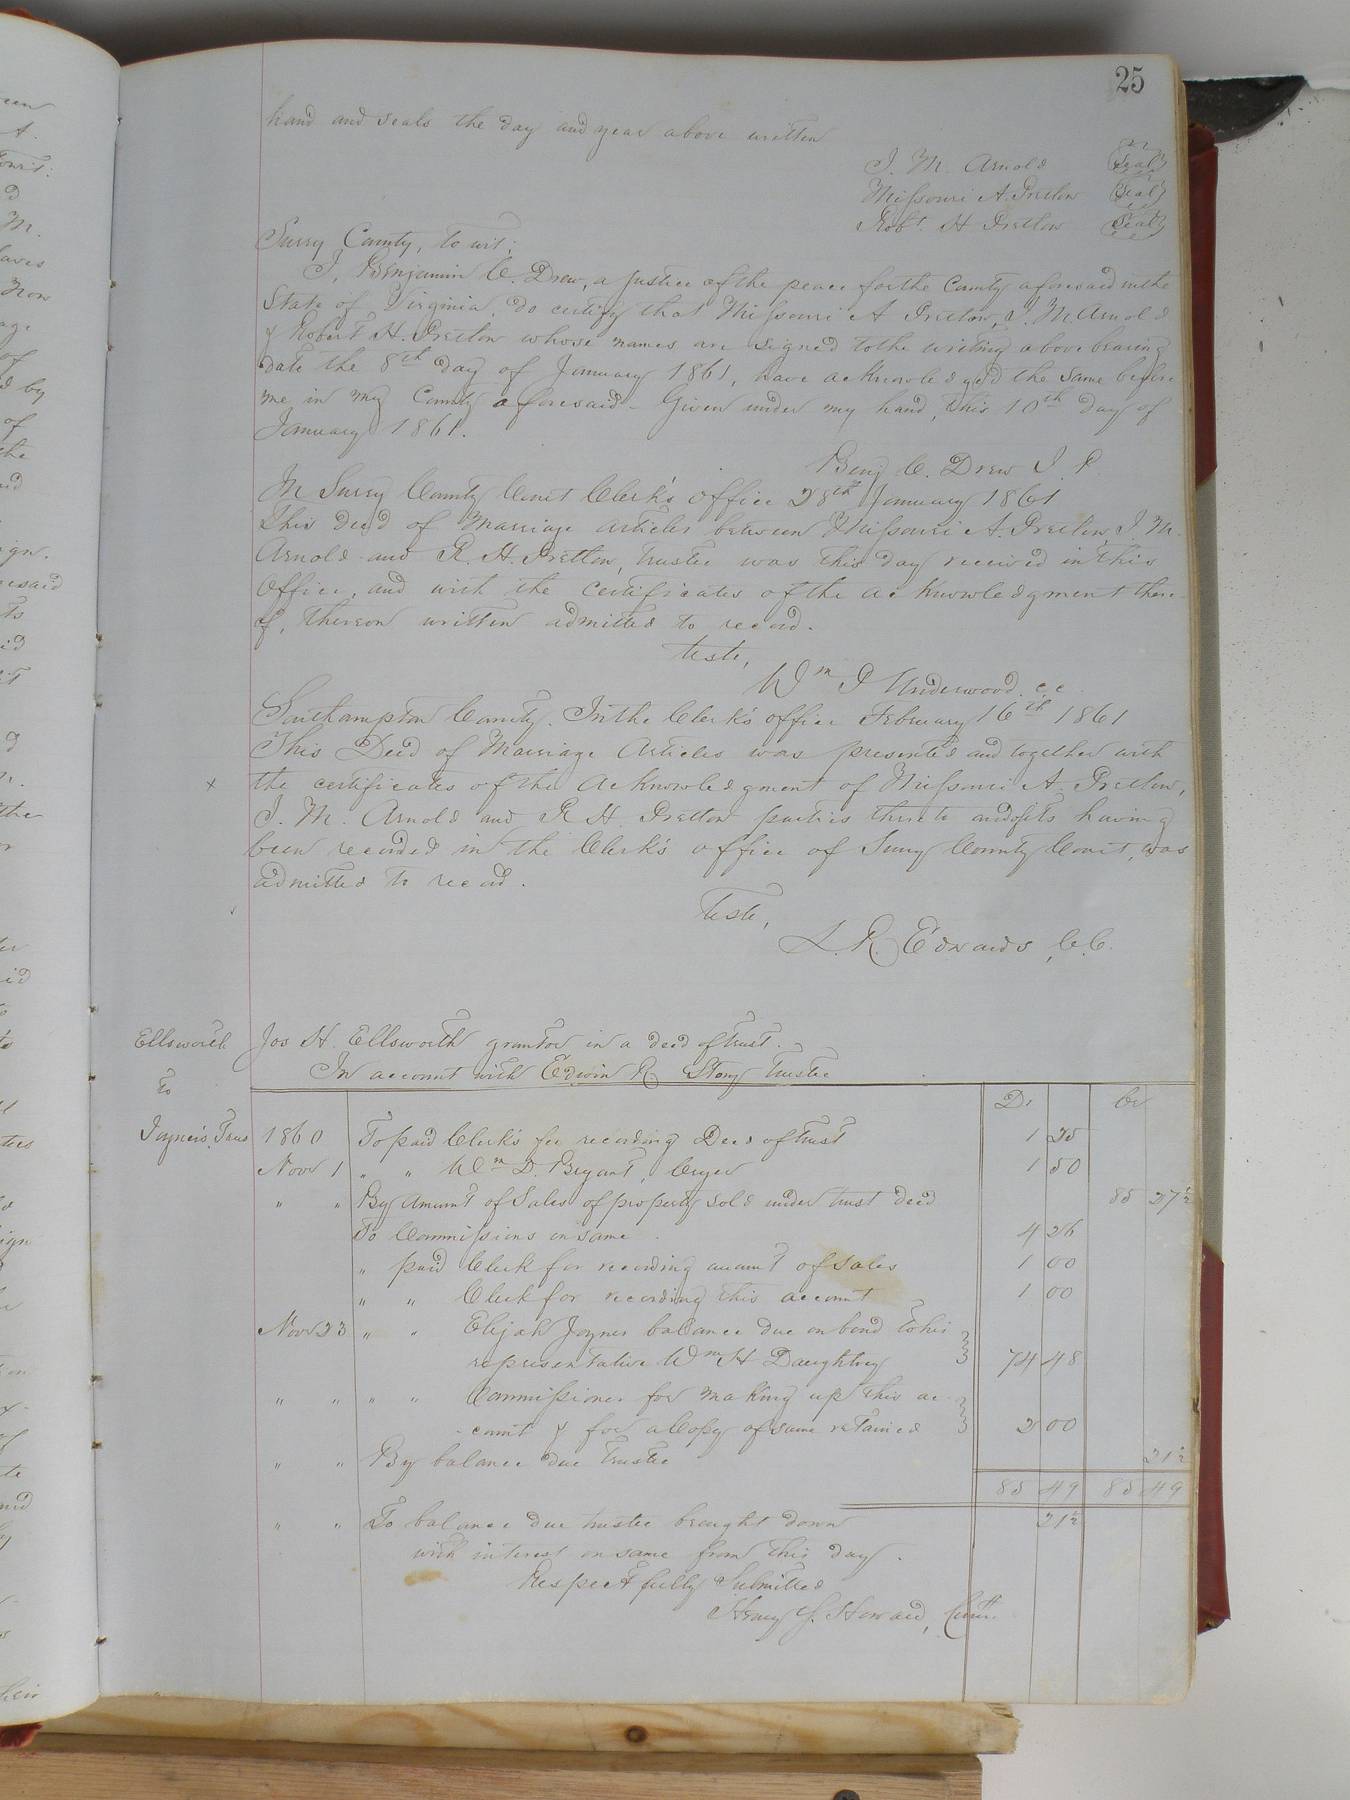 25
hand and seals the day and year above written
J. M. Arnold (Seal)
Missouri A. Pretlow (Seal)
Robt. H Pretlow (Seal)
Surry County, to wit;
I, Benjamin C. Drew, a justice of the peace for the County aforesaid in the
State of Virginia, do certify that Missouri A Pretlow, J. M. Arnold
& Robert H. Pretlow whose names are signed to the writing above bearing
date the 8th day of January 1861, have acknowledged the same before
me in my County aforesaid - Given under my hand, this 10th day of
January 1861.
Benj C. Drew J. P.
In Surry County Court Clerk's office 28th January 1861
This deed of Marriage articles between Missouri A. Pretlow, J. M.
Arnold and R. H. Pretlow, trustee was this day received in this
Office, and with the certificates of the acknowledgment there-
of, thereon written admitted to record.
Teste,
Wm P Underwood. c.c
Southampton County. In the Clerk's office February 16th 1861
This Deed of Marriage Articles was presented and together with
x the certificates of the Acknowledgment of Missouri A. Pretlow,
J. M. Arnold and R H. Pretlow parties thereto and of its having
been recorded in the Clerk's office of Surry County Court, was
admitted to record.
Teste,
L. R. Edwards, C.C.
Ellsworth Jos H. Ellsworth grantor in a deed of trust.
In account with Edwin R Story Trustee
To
Dr Cr
Joyner's Trus 1860 To paid Clerk's fee recording Deed of trust 1 25
Novr 1 " " Wm D. Bryant, Cryer 1 50
" " By Amount of Sales of property sold under trust deed 85 27½
To Commissions on same 4 26
" paid Clerk for recording amount of sales 1 00
" " Clerk for recording this account 1 00
Novr 23 " " Elijah Joyner balance due on bond to his
representative Wm H Daughtrey 74 48
" " " " Commissioner for making up this ac-
count & for a Copy of same retained 2 00
" " By balance due Trustee 21½
85 49 85 49
" " To balance due trustee brought down 21½
with interest on same from this day.
Respectfully Submitted
Henry Howard, Comr.